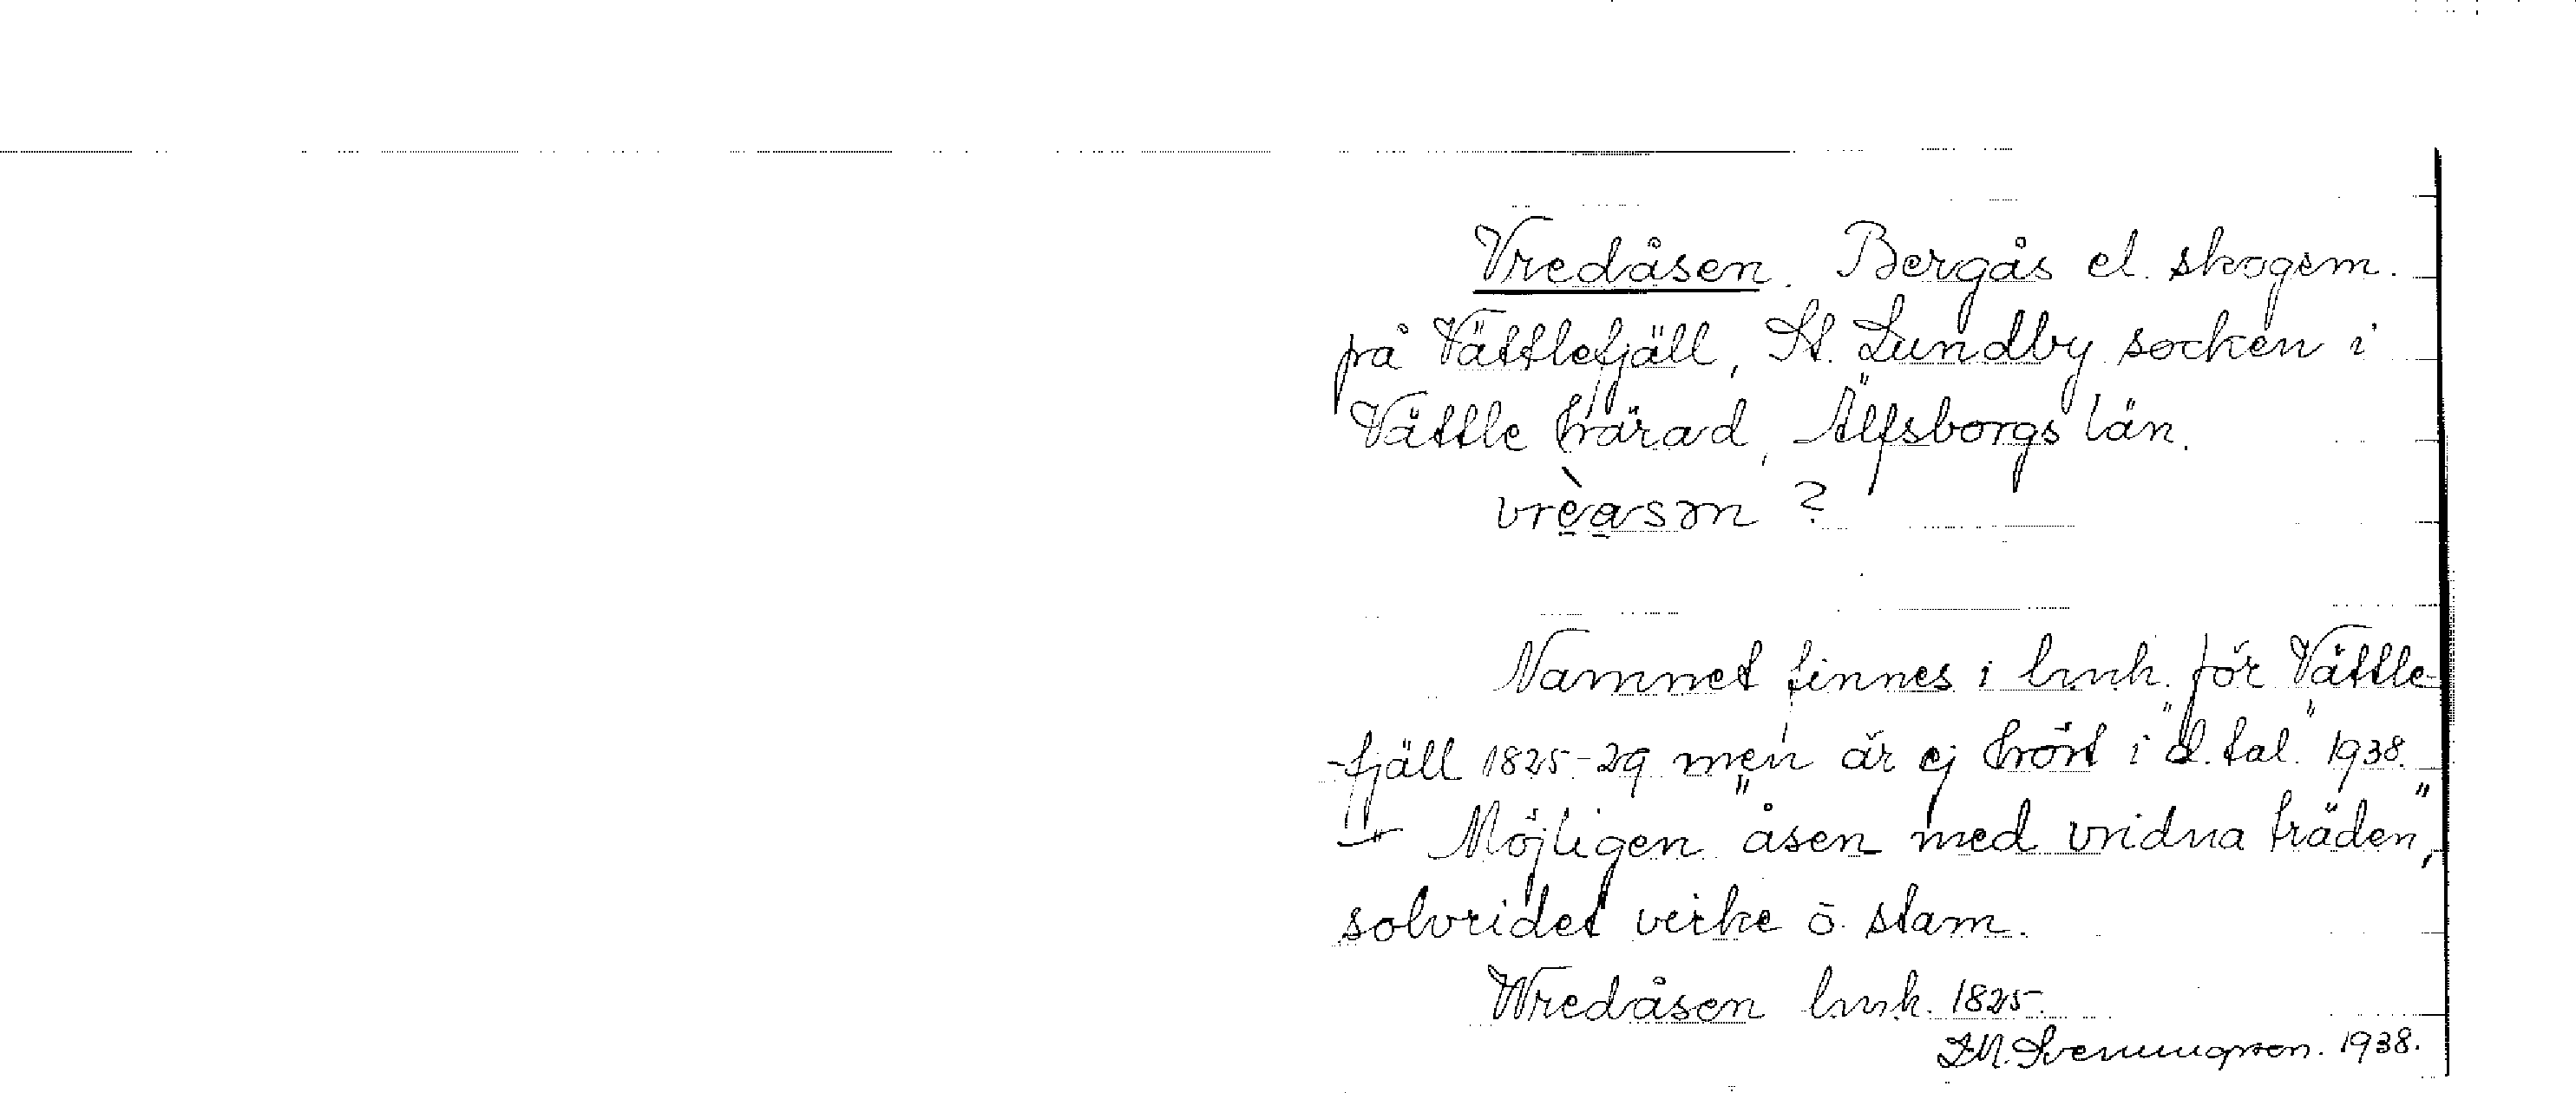 Vredåsen. Bergås el. skogsm.
på Vättlefjäll, St. Lundby socken i
Vättle härad, Älfsborgs län.
vrèasən ?
Namnet finnes i lmk. för Vättle-
-fjäll 1825-29 men är ej hört i "d. tal." 1938.
Möjligen "åsen med vridna träden",
solvridet virke o. stam.
Wredåsen lmk. 1825.
Svenungsson. 1938.